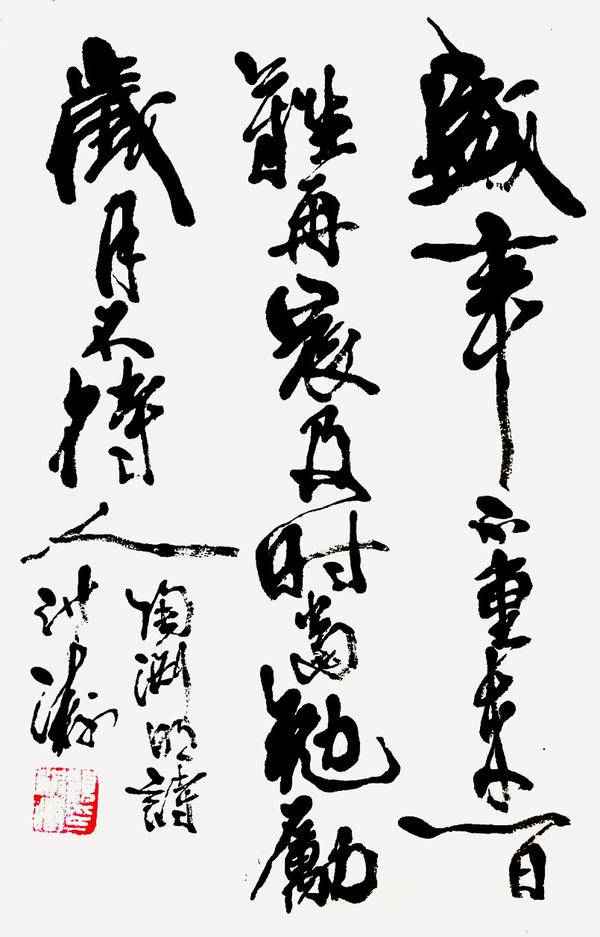 盛年不重来一日
難再晨及时當勉勵
歲月不待人
陶渊明詩